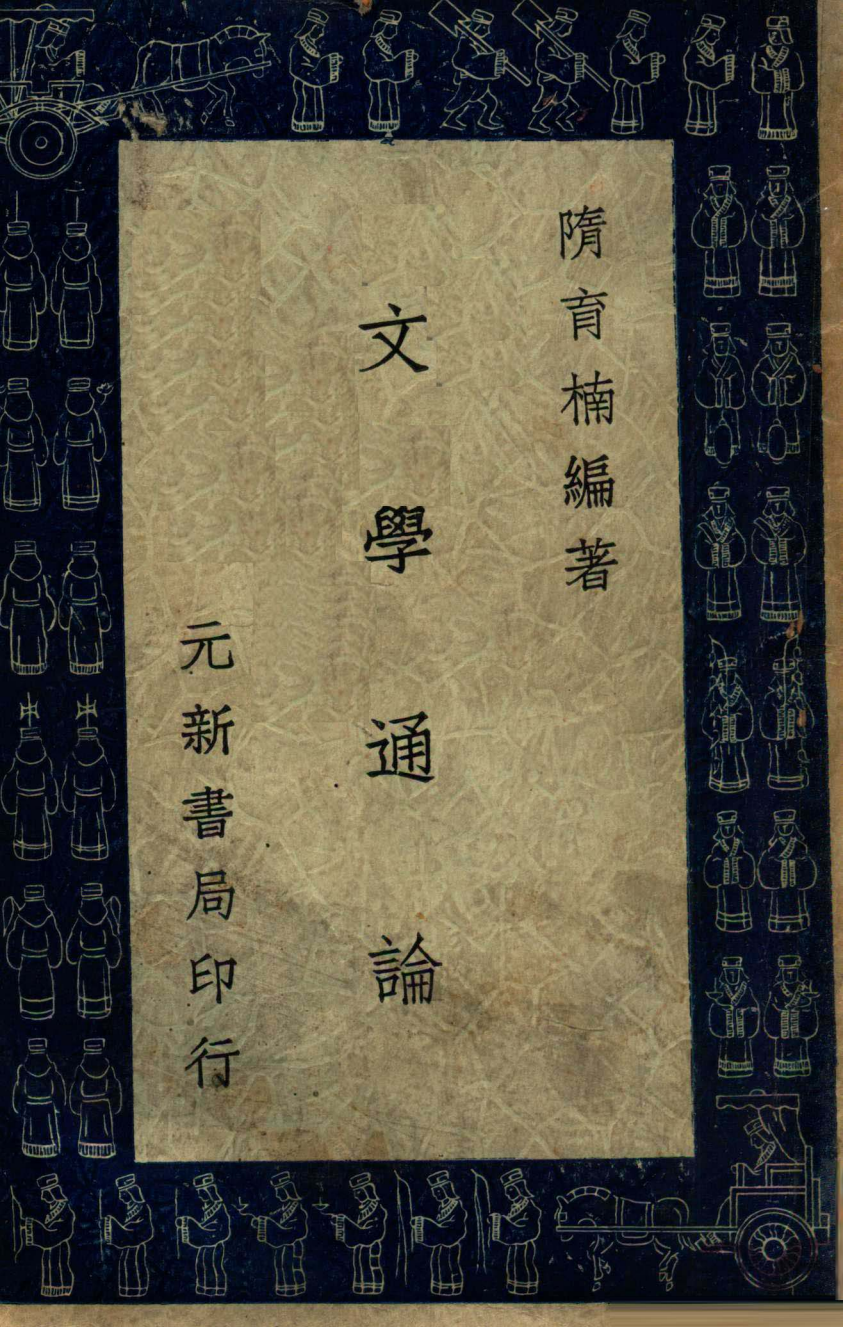 隋育楠編著
文學通論
元新書局印行